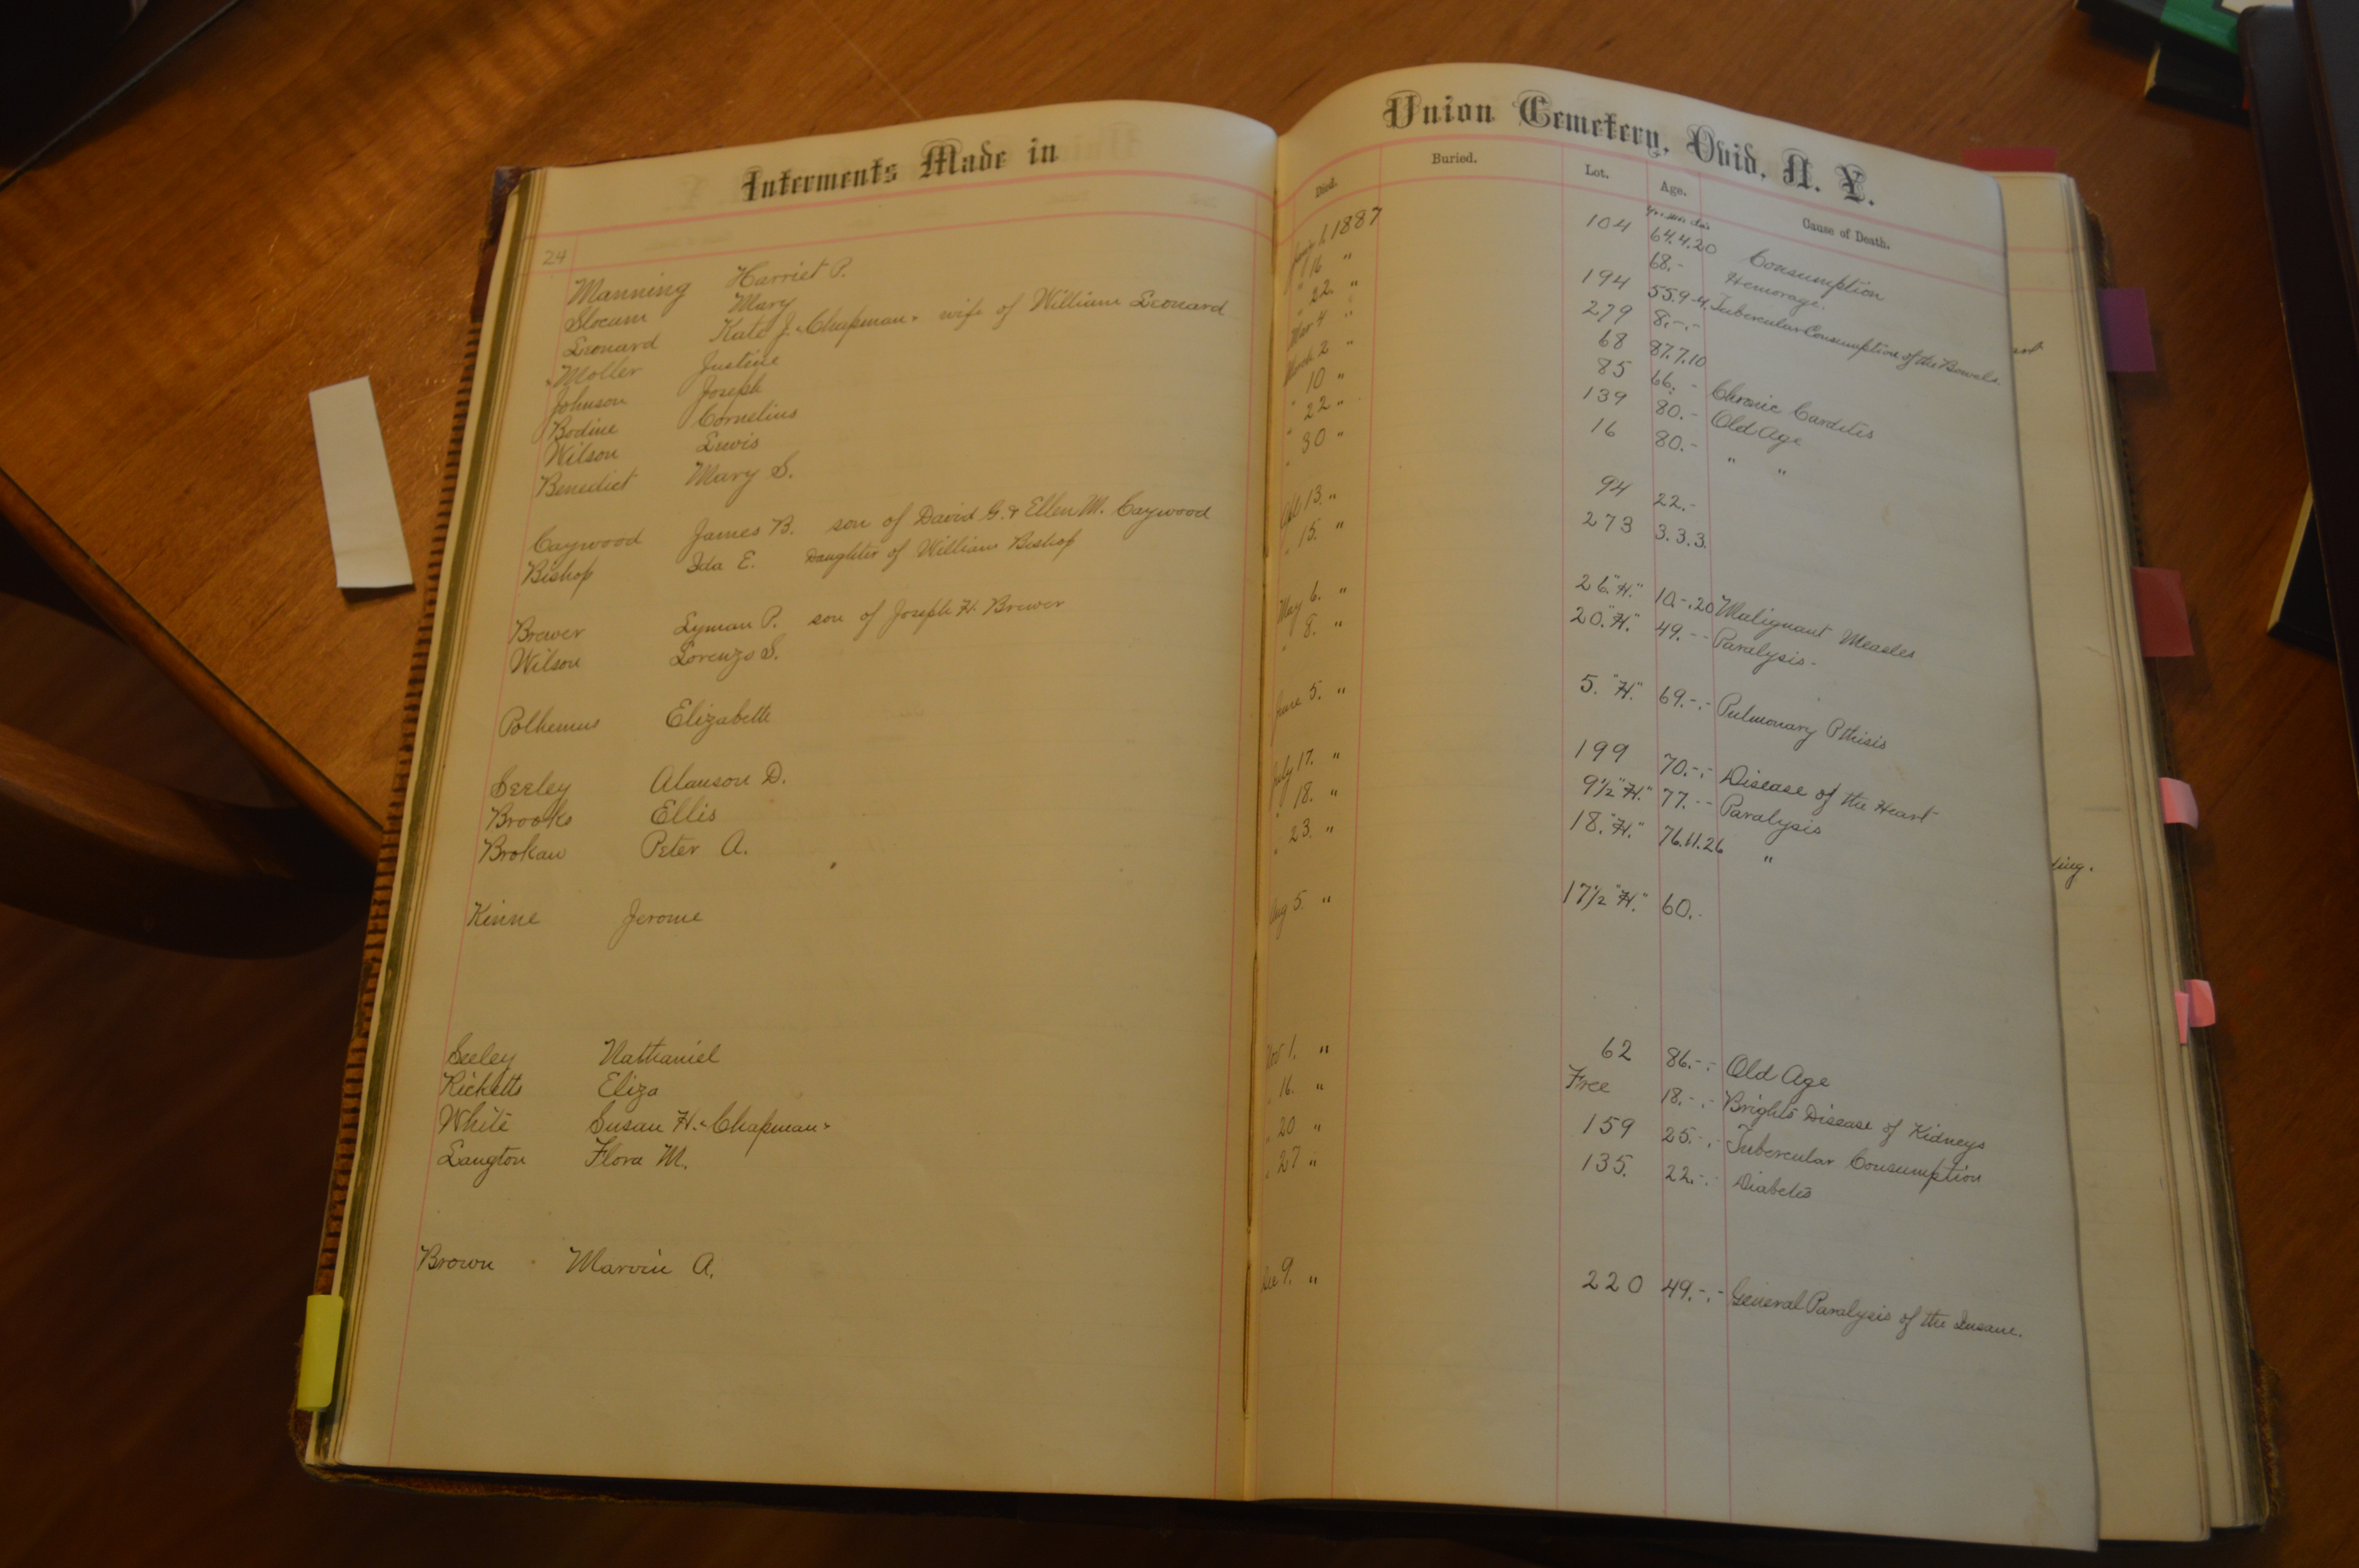 Interments Made in Union Cemetery, Ovid, N. Y.
Died. Buried. Lot. Age. Cause of Death.
24
Manning Harriet P. 1, 1887 104 64.4.20 Consumption
Slocum Mary " 16 " 68.- Hemorage.
Leonard Kate J. "Chapman" wife of William Leonard " 22. " 194 55.9-4. Tubercular Consumption of the Bowels.
Moller Justine Mar 4 " 279 8.-.-
Johnson Joseph March 2 " 68 87.7.10
Bodine Cornelius " 10 " 85 66.- Chronic Carditis
Wilson Lewis " 22 " 139 80.- Old Age
Benedict Mary S. " 30 " 16 80.- " "
Caywood James B. son of David G. & Ellen M. Caywood 13. " 94 22.-
Bishop Ida E. Daughter of William Bishop " 15. " 273 3.3.3.
Brewer Lyman P. son of Joseph H. Brewer May 6. " 26 "H." 10.-.20 Malignant Measles
Wilson Lorenzo S. " 8. " 20. "H." 49.-- Paralysis-
Polhemus Elizabeth June 5. " 5. "H." 69.-.- Pulmonary Pthisis
Seeley Alanson D. July 17. " 199 70.-.- Disease of the Heart
Brooks Ellis " 18. " 9½ "H." 77.-- Paralysis
Brokaw Peter A. " 23. " 18. "H." 76.11.26 "
Kinne Jerome Aug 5. " 17½ "H." 60.-
Seeley Nathaniel Nov 1. " 62 86.-.- Old Age
Ricketts Eliza " 16. " Free 18.-.- Brights Disease of Kidneys
White Susan H. "Chapman" " 20 " 159 25.-.- Tubercular Consumption
Langton Flora M. " 27 " 135. 22.-.- Diabetis
Brown Marvin A. Dec 9. " 220 49.-.- General Paralysis of the Insane.